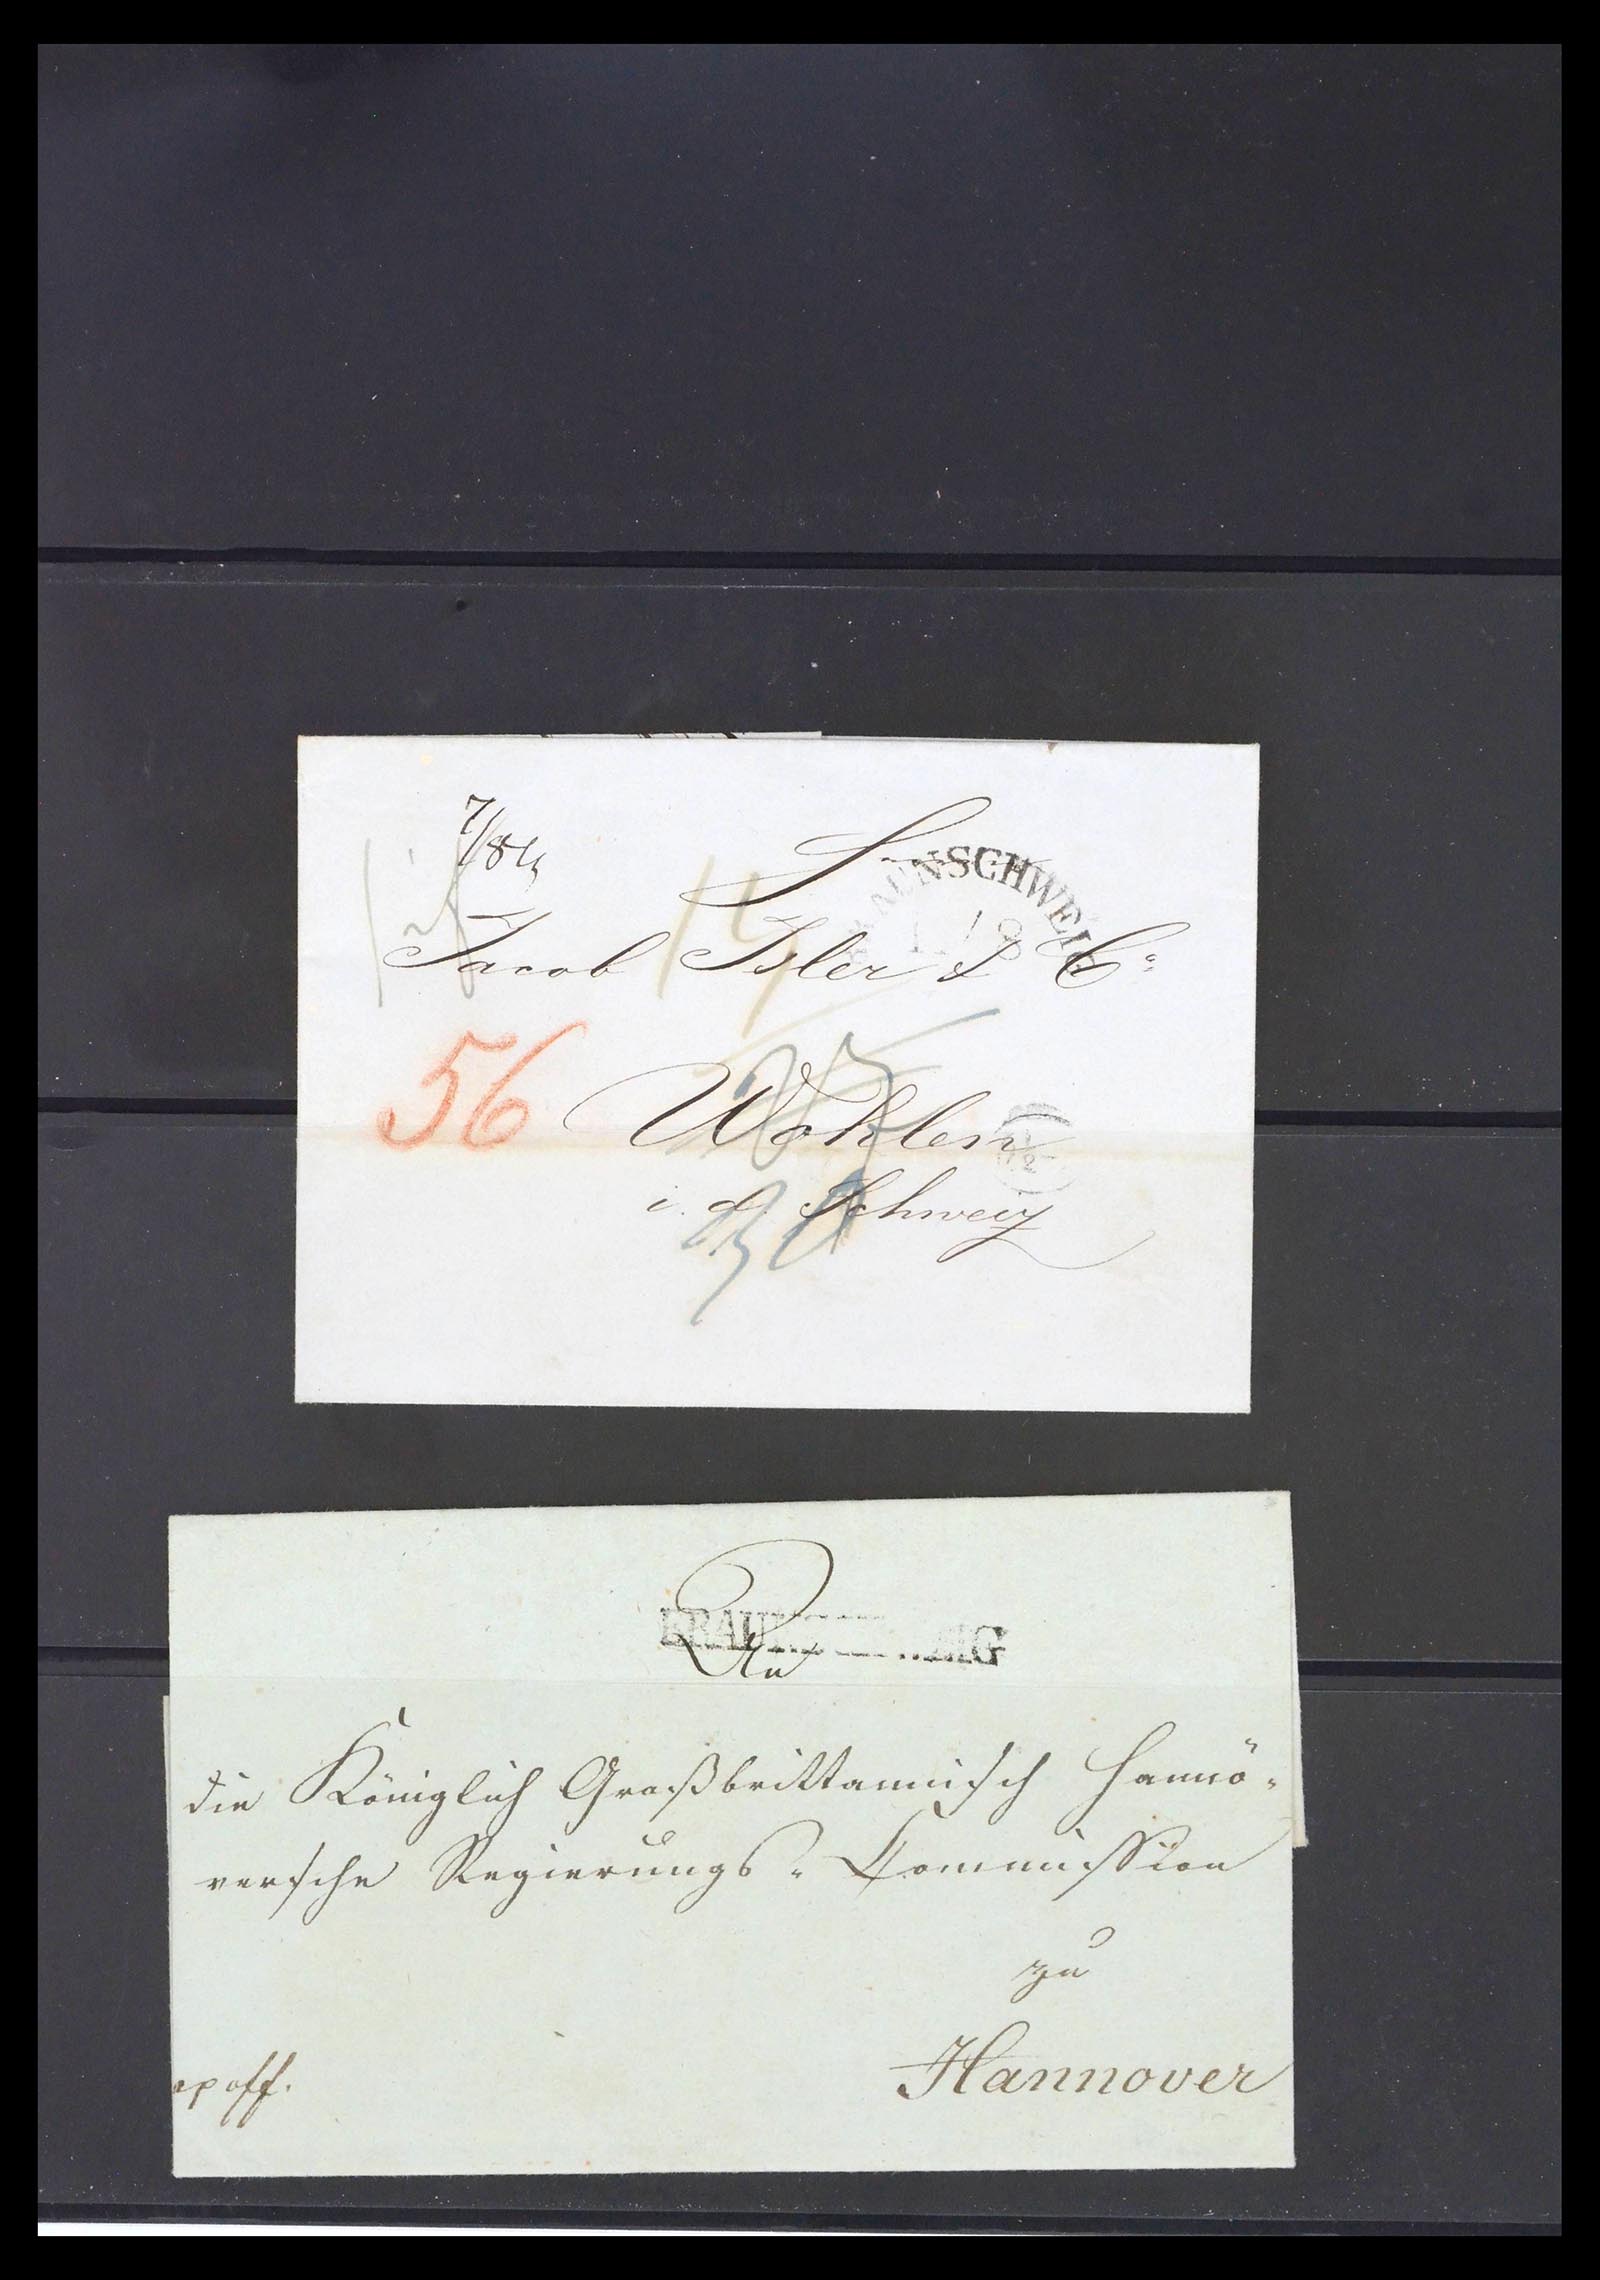 BRAUNSCHWEIG
Jacob Isler & Co
56
Wohlen
i. d. Schweiz
An
die Königlich Großbrittannisch Hannö-
versche Regierungs-Commission
zu
Hannover